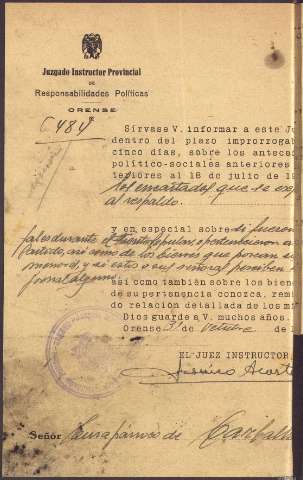 Juzgado Instructor Provincial
DE
Responsabilidades Políticas
ORENSE
6.484
Sírvase V. informar a este Ju
dentro del plazo improrrogab
cinco días, sobre los antece
político-sociales anteriores
teriores al 18 de julio de 19
del encartados que se ex
al respaldo.
y en especial sobre si fueron
durante el Frente popular, o pertenecieron a
Partido, así como de los bienes que posean
menores, y si estos o su señora perciben
jornal alguno.
así como también sobre los bien
de su pertenencia conozca, rem
do relación detallada de los mi
Dios guarde a V. muchos años.
Orense 31 de octubre de 1
EL JUEZ INSTRUCTOR,
Señor Cura párroco de